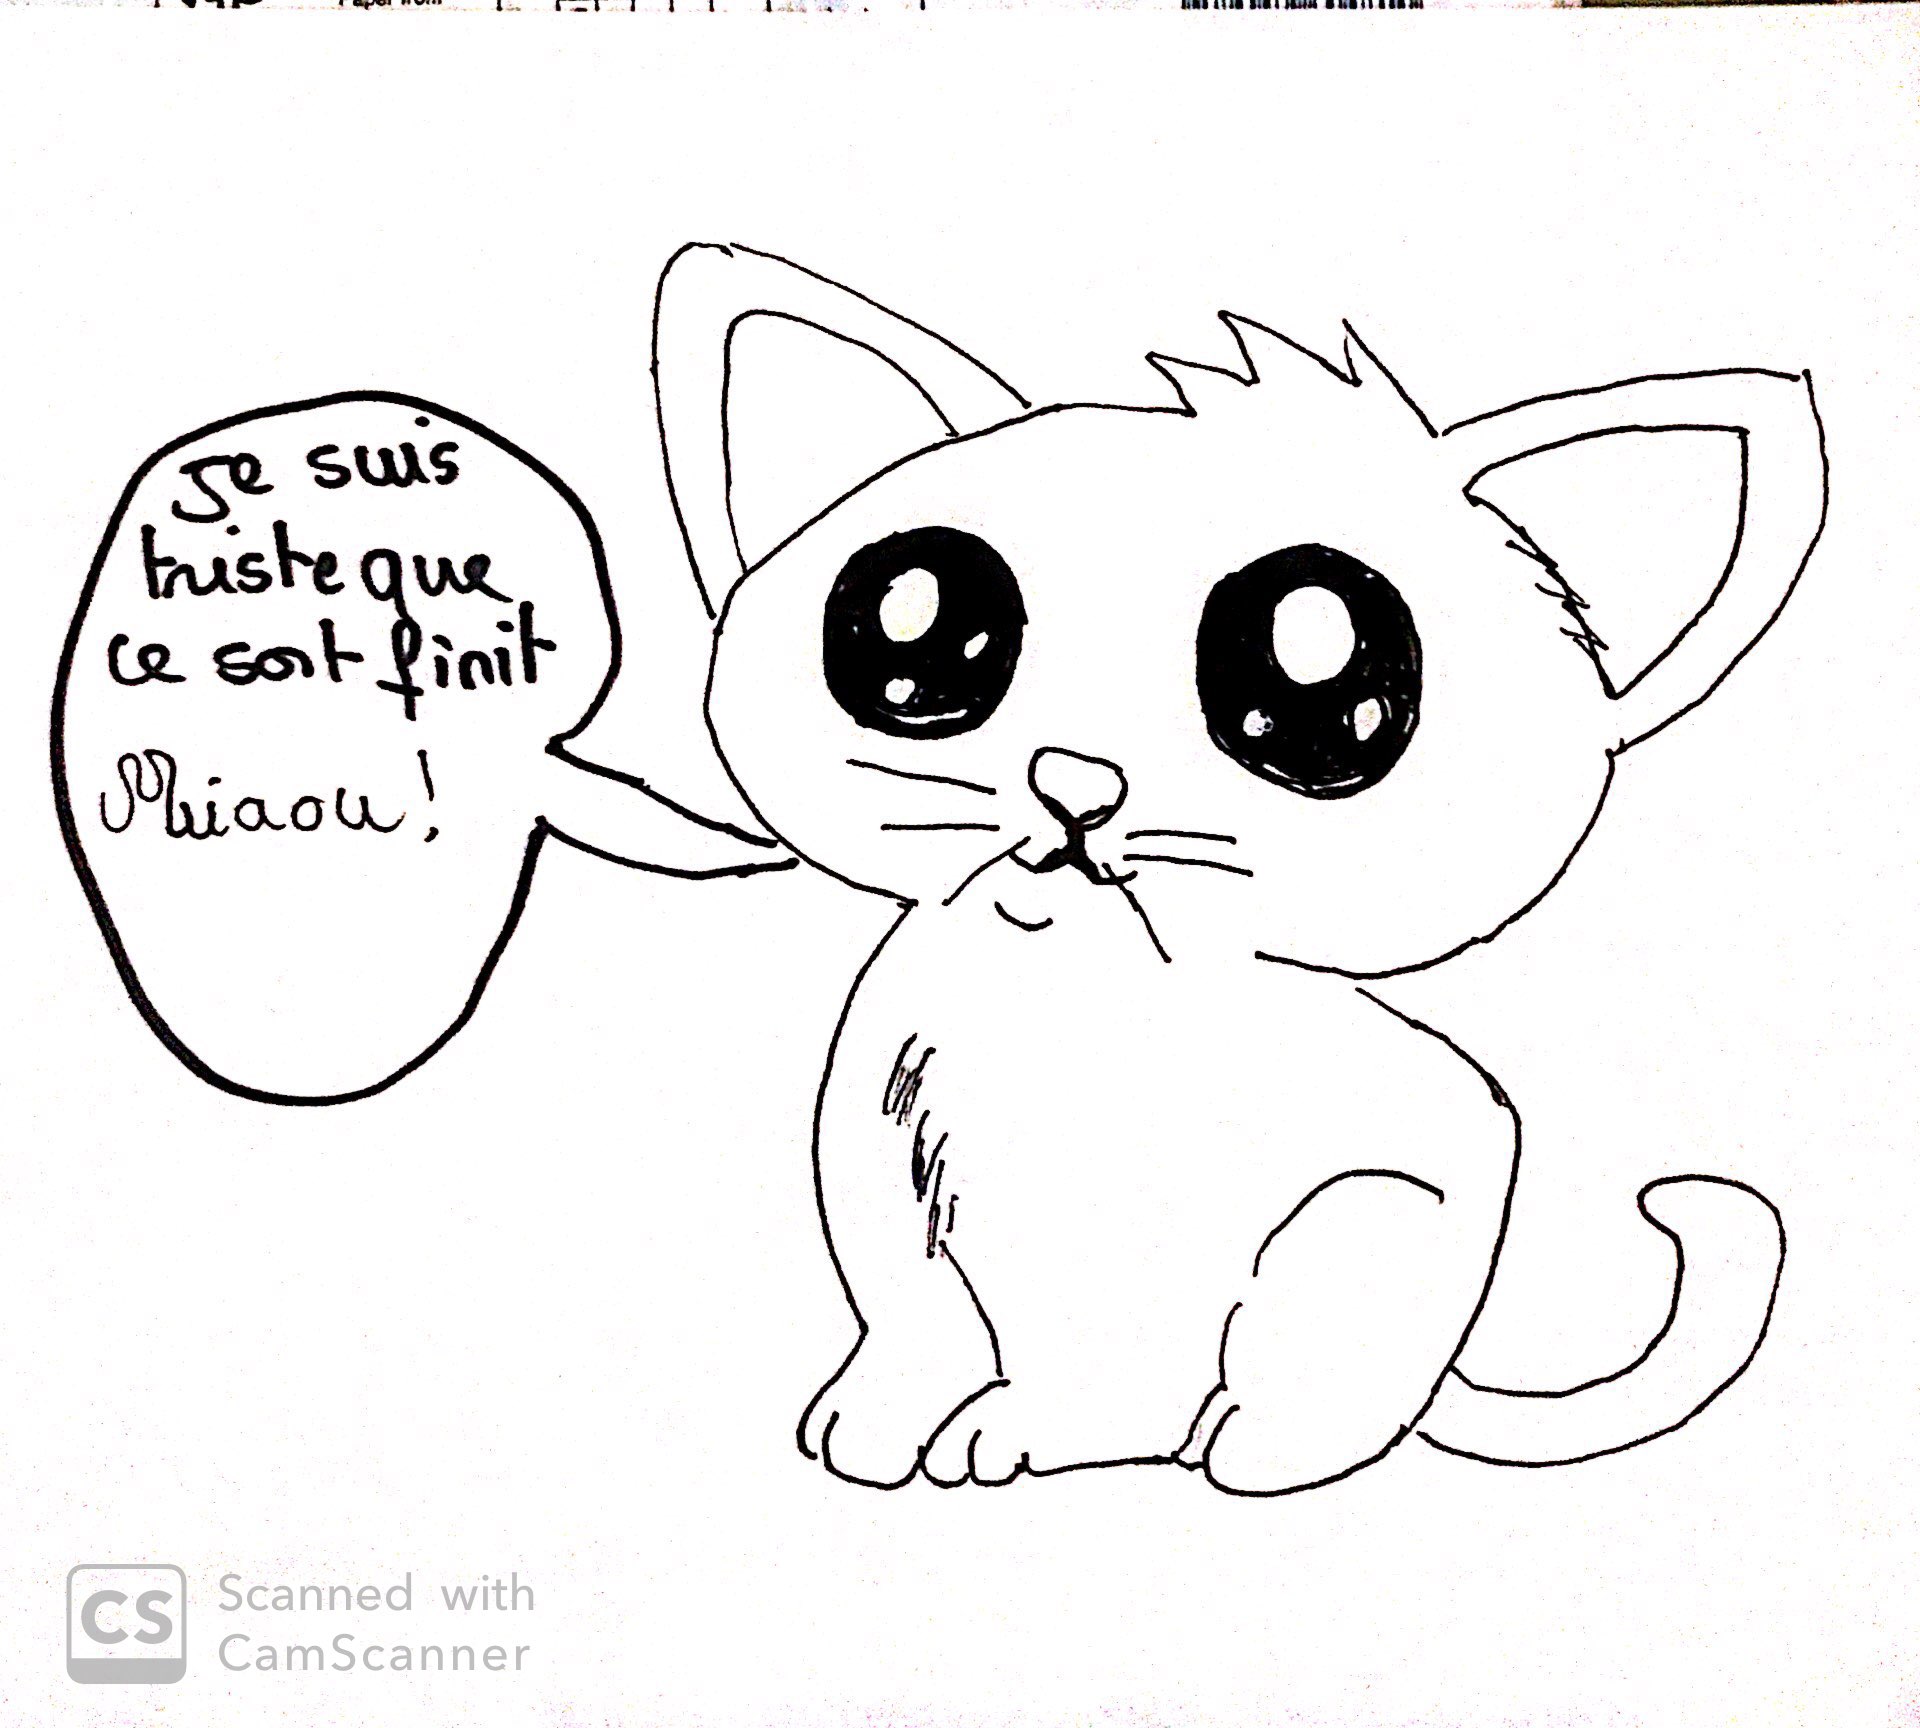 Je suis
triste que
ce soit finit
Miaou !
CS Scanned with
CamScanner